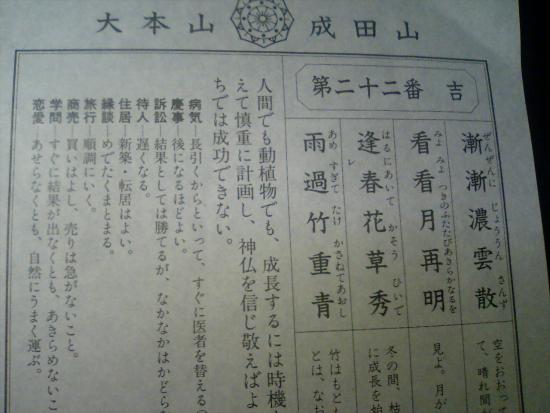 大本山 成田山
第二十二番 吉
漸漸濃雲散
ぜんぜんに じょううん さんず
看看月再明
みよ みよ つきのふたたびあきらかなるを
逢春花草秀
はるにあいて かそう ひいで
レ
雨過竹重青
あめ すぎて たけ かさねてあおし
空をおおって
て、晴れ間
見よ。月が
冬の間、枯
に成長を始
竹はもと
とは、なお
人間でも動植物でも、成長するには時機
えて慎重に計画し、神仏を信じ敬えばよ
ちでは成功できない。
病気―長引くからといって、すぐに医者を替える
慶事―後になるほどよい。
訴訟―結果としては勝てるが、なかなかはかどら
待人―遅くなる。
住居―新築・転居はよい。
縁談―めでたくまとまる。
旅行―順調にいく。
商売―買いはよし、売りは急がないこと。
学問―すぐに結果が出なくとも、あきらめないこ
恋愛―あせらなくとも、自然にうまく運ぶ。